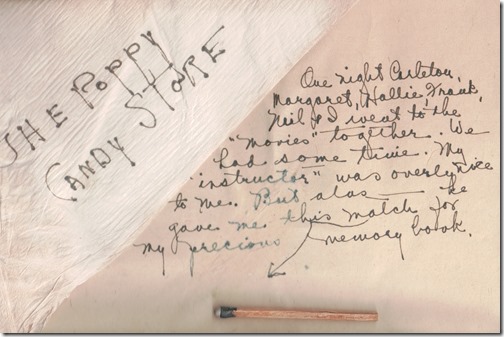 THE POPPY
CANDY STORE
One night Carleton,
Margaret, Hallie, Frank,
Neil & I went to the
"movies" together. We
had some time. My
"instructor" was overly nice
to me. But alas — he
gave me this match for
my precious memory book.